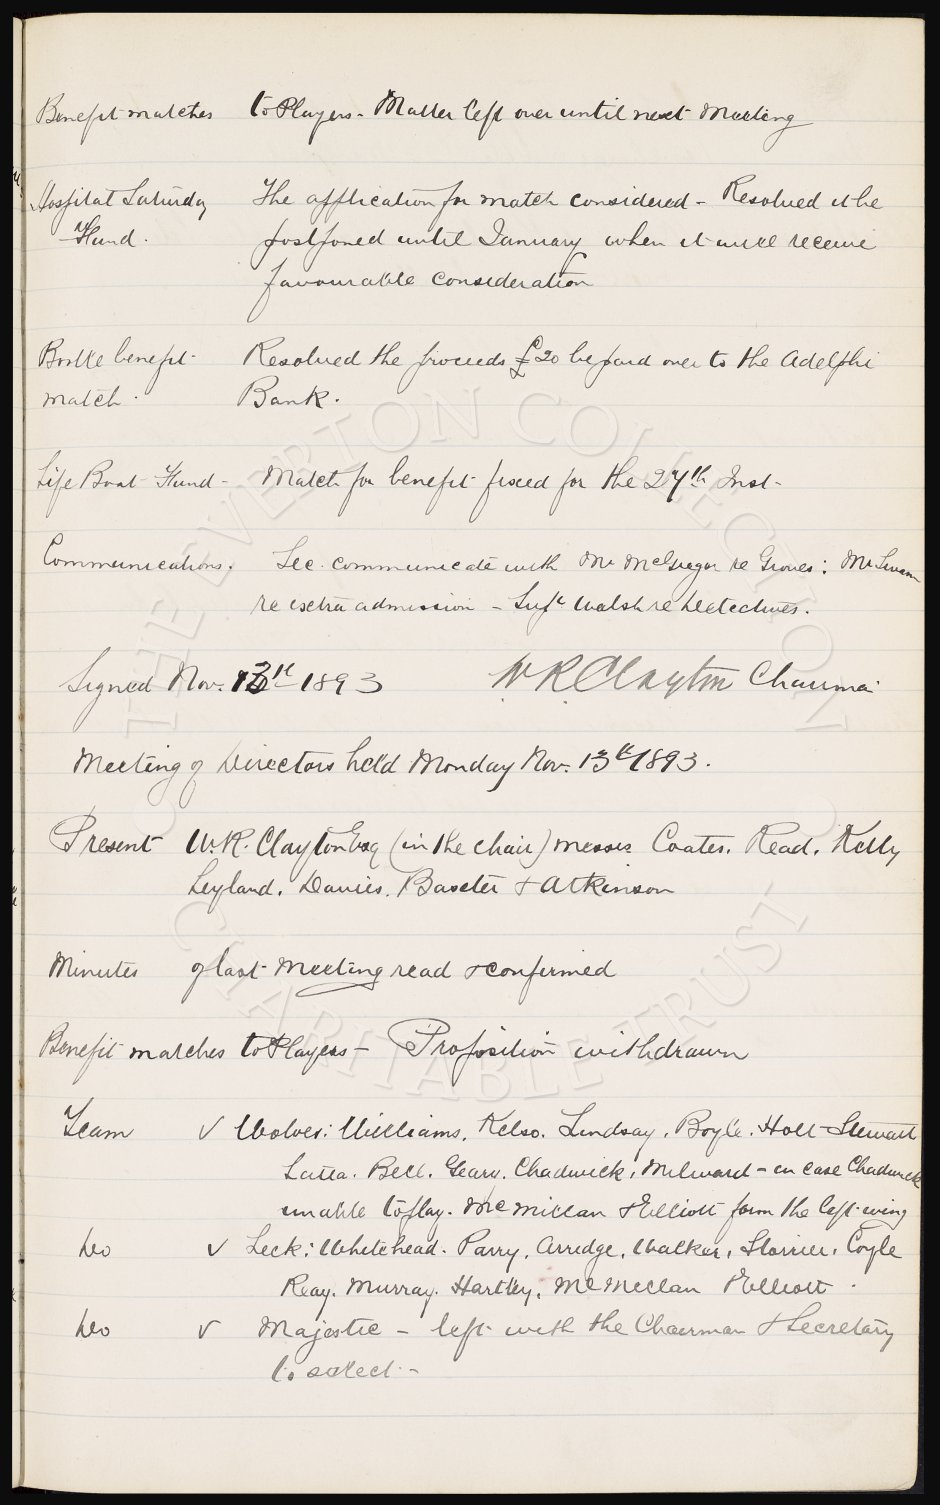 Benefit matches to Players - Matter left over until next Meeting
Hospital Saturday The application for match considered - Resolved it be
Fund. postponed until January when it will receive
favourable consideration
Bootle benefit Resolved the proceeds £20 be paid over to the Adelphi
match. Bank.
Life Boat Fund - Match for benefit fixed for the 27th Inst -
Communications. Sec. communicate with Mr McGregor re Groves: Mr
re extra admission - Supt Walsh re detectives.
Signed Nov. 13th 1893 W R Clayton Chairman
Meeting of Directors held Monday Nov. 13th 1893.
Present W. R. Clayton Esq (in the chair) Messrs Coates. Read. Kelly
Leyland. Davies. Baxter & Atkinson
Minutes of last Meeting read & confirmed
Benefit matches to Players - Proposition withdrawn
Team v Wolves: Williams. Kelso. Lindsay. Boyle. Holt - Stewart
Latta. Bell. Geary. Chadwick, Milward - in case Chadwick
unable to play. McMillan & Elliott form the left wing
Do v Leek: Whitehead. Parry, Arridge, Walker, Storrier, Coyle
Reay. Murray. Hartley. McMillan & Elliott.
Do v Majestic - left with the Chairman & Secretary
to select -
THE EVERTON COLLECTION
CHARITABLE TRUST